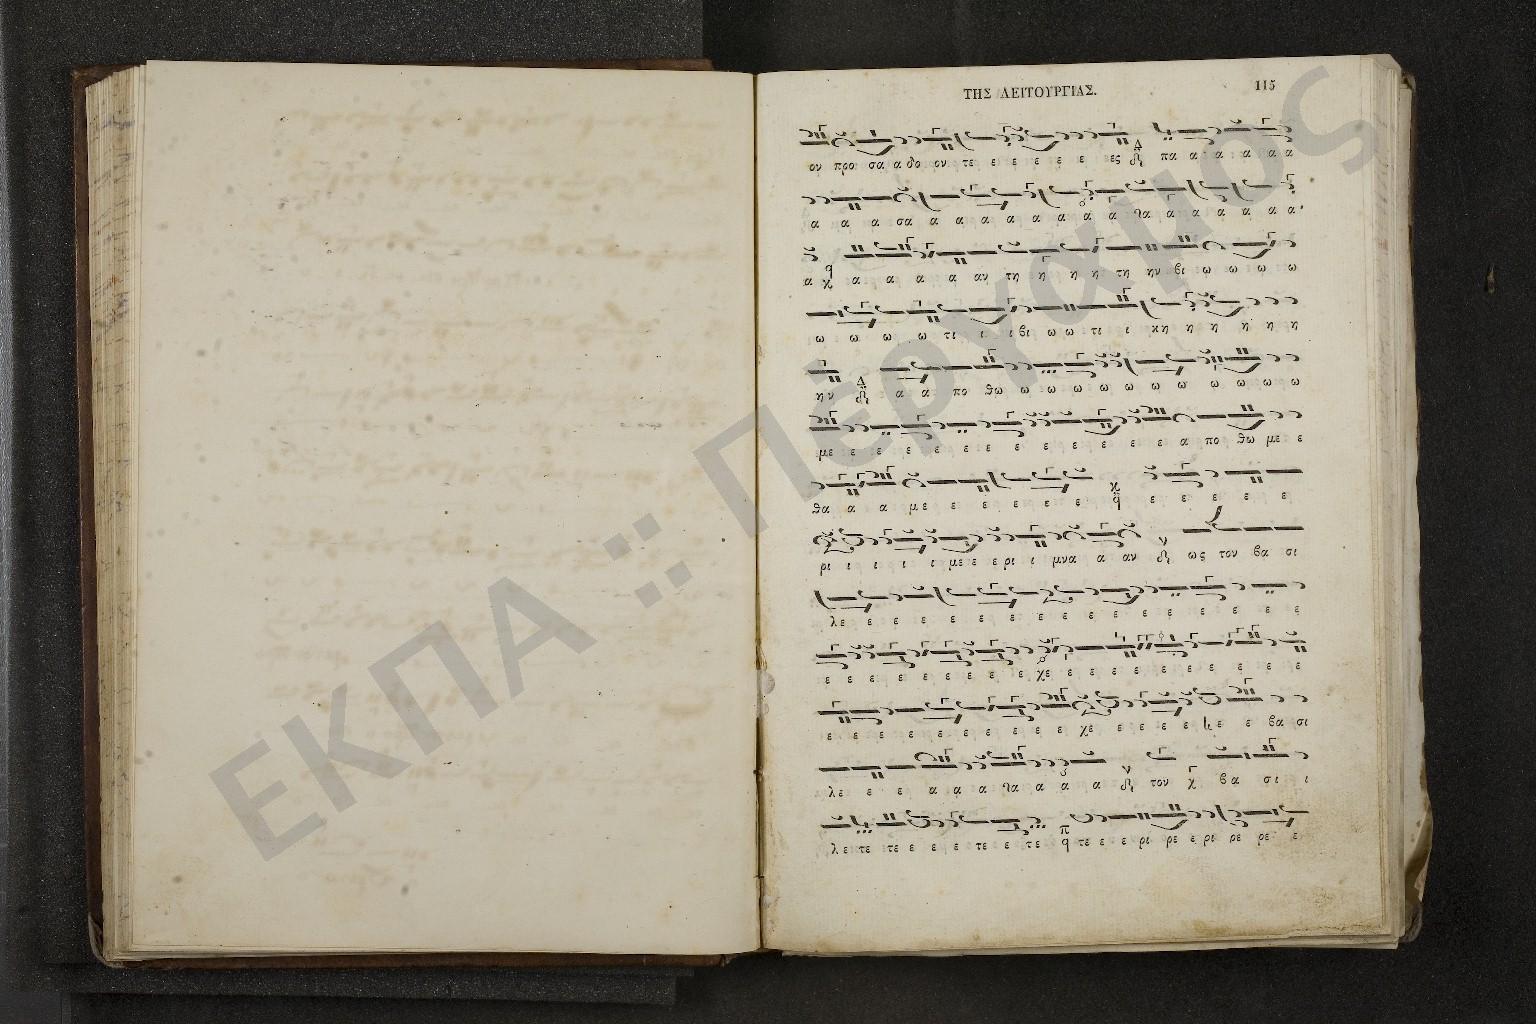 ΤΗΣ ΛΕΙΤΟΥΡΓΙΑΣ. 115
ον προ σα α δο ον τε ε ε ε ε ε ες πα α α α α α
α α α σα α α α α α α α α α α α α α α
α α α α α αν τη η η η τη ην βι ω ω ω ω
ω ω ω ω τι ι ι βι ω ω τι ι κη η η η η η
ην α α πο θω ω ω ω ω ω ω ω ω ω ω ω
με ε ε ε ε ε ε ε ε ε ε ε ε α πο θω με ε
θα α α με ε ε ε ε ε ε ε ε ε ε ε
ρι ι ι ι ι με ε ε ρι ι μνα α αν ως τον βα σι
λε ε ε ε ε ε ε ε ε ε ε ε ε ε ε ε ε
ε ε ε ε ε ε ε ε χε ε ε ε ε ε ε ε ε ε
ε ε ε ε ε ε ε ε ε ε χε ε ε ε ε ε ε βα σι
λε ε ε α α α α α α τον βα σι ι
λε τε τε ε ε ε τε ε τε τε ε ε ρι ρε ε ρι ρε ρε ε
ΕΚΠΑ :: Πέργαμος